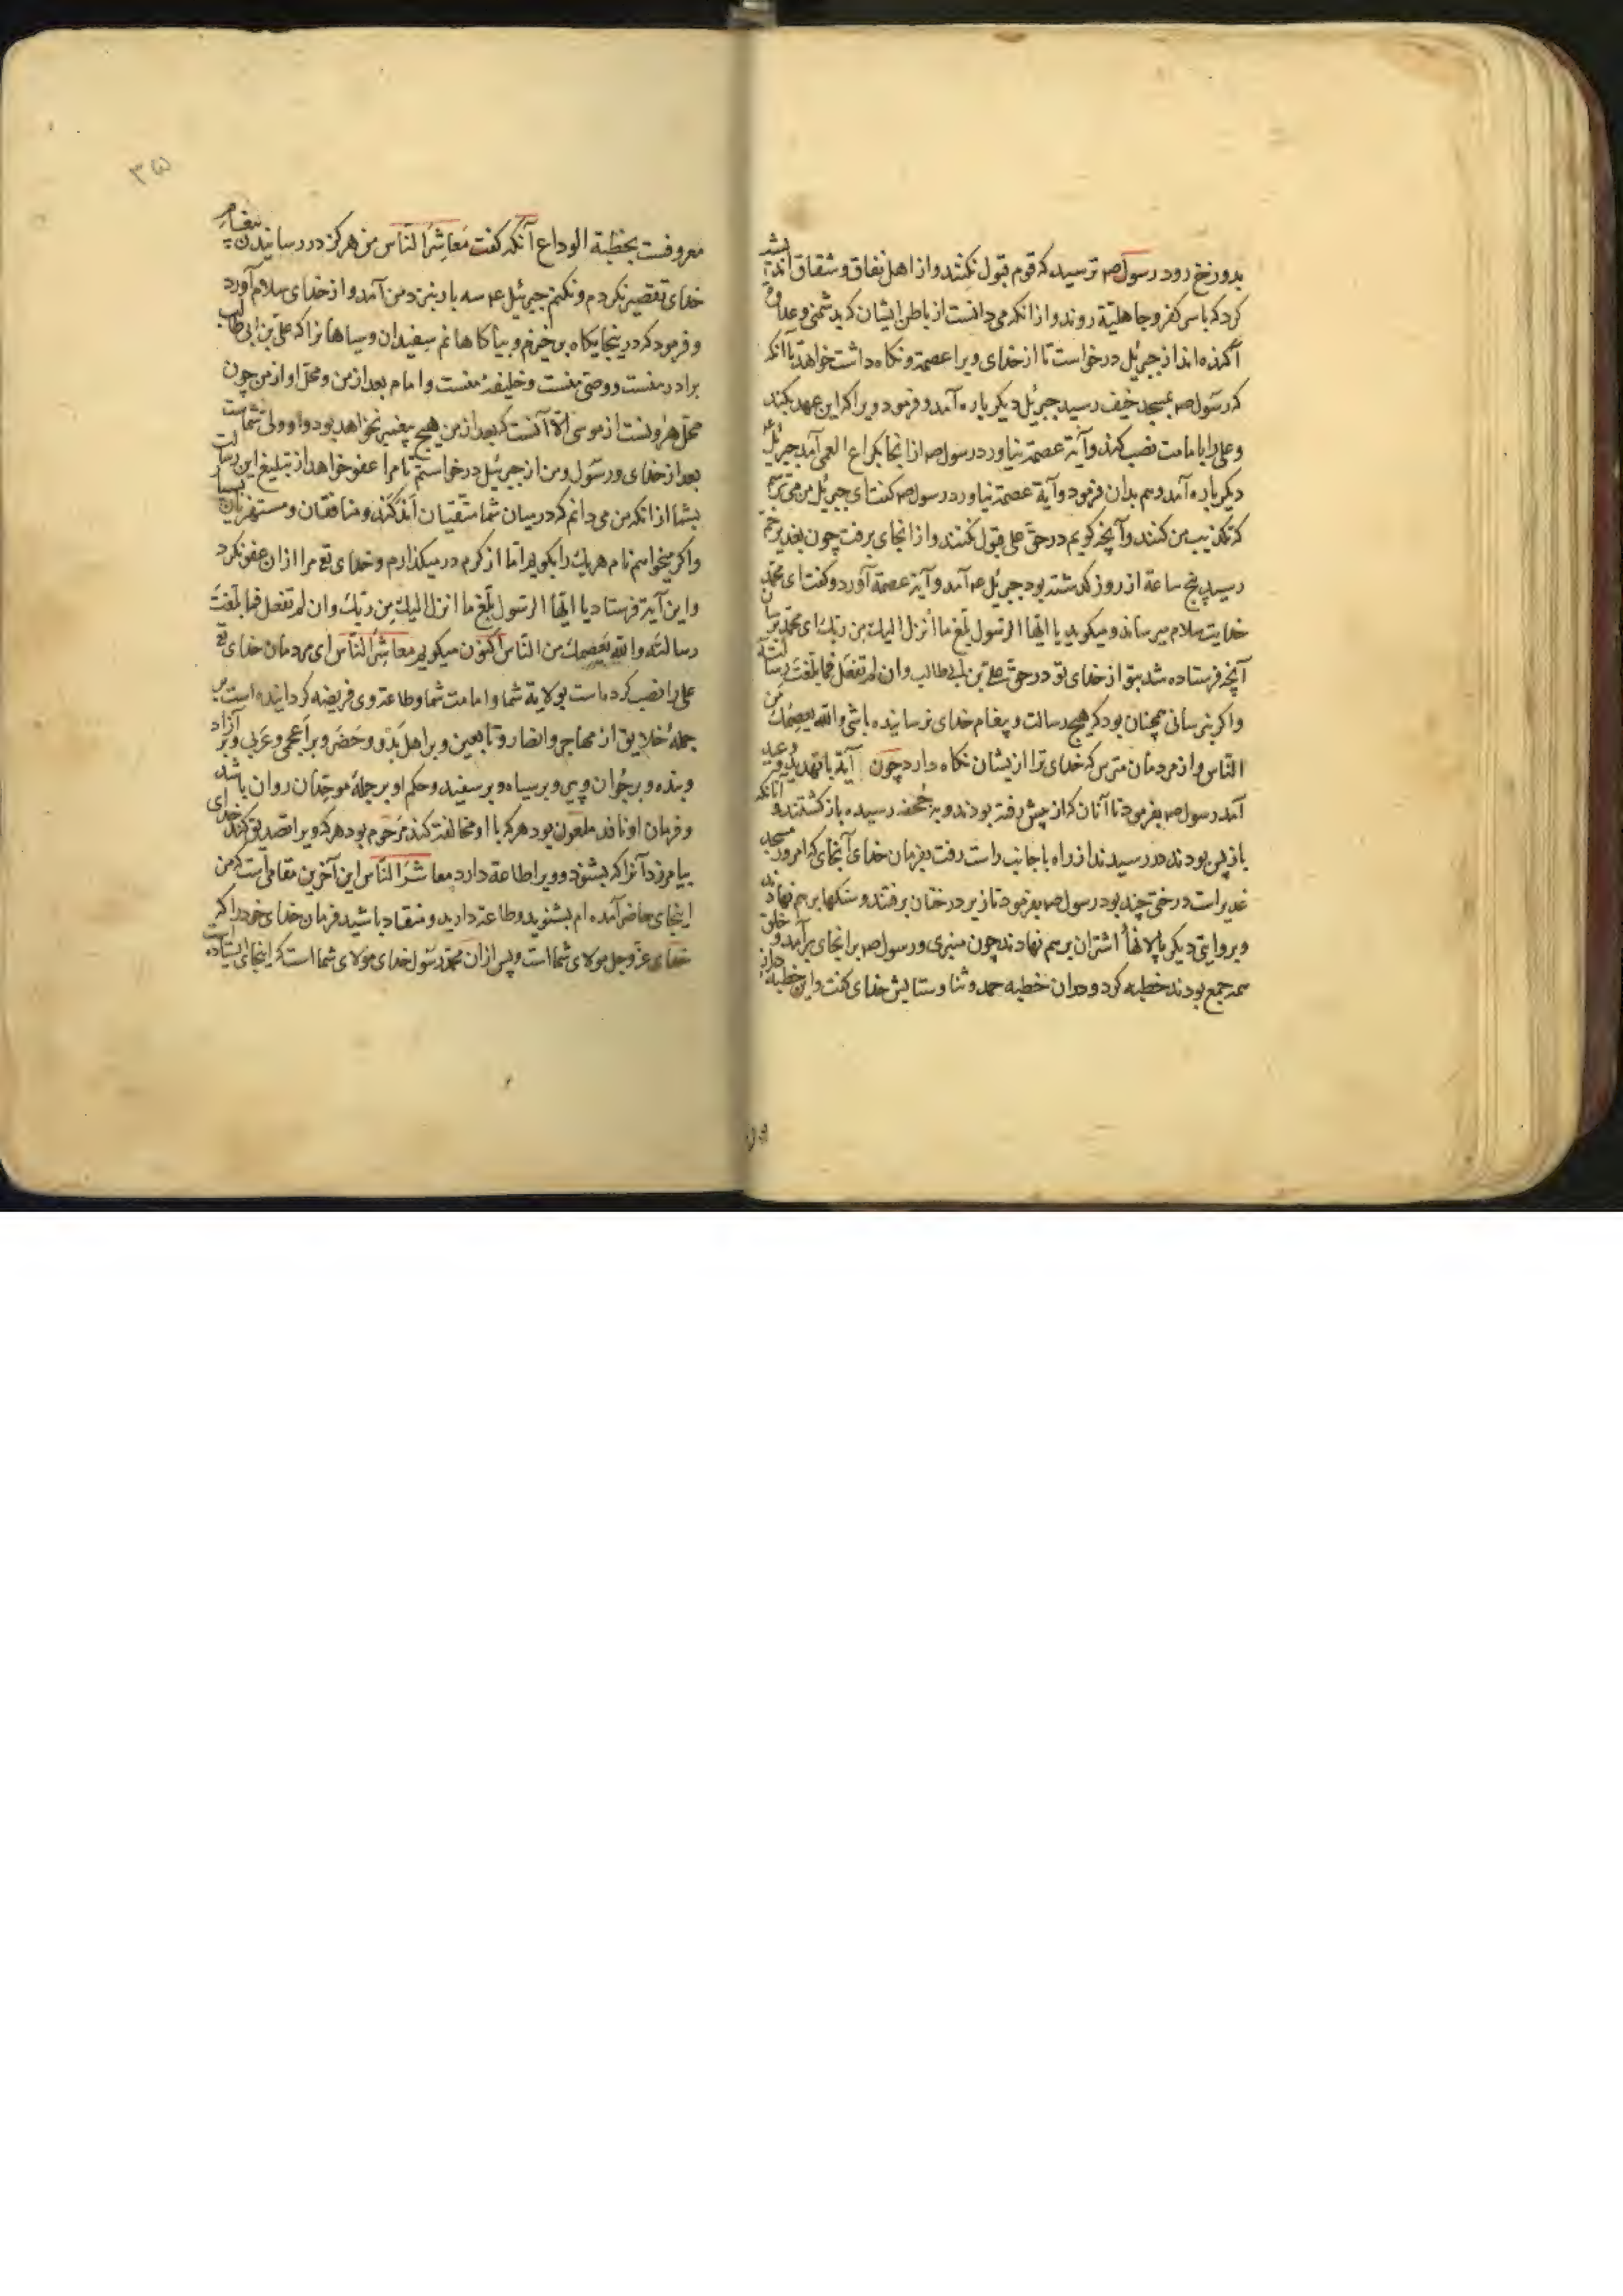 بدوزخ رود رسول صم ترسید که قوم قبول نکنند و از اهل نفاق و شقاق اندیشه
کرد که باس کفر و جاهلیّة روند و از انکه می دانست از باطن ایشان که بدشمنی و عداوة
آکنده اند از جبرئیل درخواست تا از خدای ویرا عصمة و نکاه داشت خواهد تا آنکه
که رسول صم بمسجد خیف رسید جبرئیل دیکر باره آمد و فرمود ویرا که این عهد بکند
و علی را بامامت نصب کند و آیة عصمة نیاورد رسول صم از انجا بکراع الغمیم آمد جبرئیل
دیکر باره آمد و هم بدان فرمود و آیة عصمة نیاورد رسول صم کفت ای جبرئیل من می ترسم
که تکذیب من کنند و آنچه کویم در حق علی قبول نکنند و از انجای برفت چون بغدیر خم
رسید پنج ساعة از روز کذشته بود جبرئیل عم آمد و آیة عصمة آورد و کفت ای محمد
خدایت سلام میرساند و میکوید یا ایّها الرّسول بلّغ ما اُنزل الیك من ربّك ای محمد برسان
آنچه فرستاده شد بتو از خدای تو در حق علی بن ابی طالب و ان لم تفعل فما بلّغت رسالته
و اکر نرسانی همچنان بود که هیچ رسالت و پیغام خدای نرسانیده باشی و الله یعصمك من
النّاس و از مردمان مترس که خدای ترا از یشان نکاه دارد چون آیة با تهدید و وعید
آمد رسول صم بفرمود تا آنان که از پیش رفته بودند و به جُحفه رسیده باز کشتند و آنانکه
باز پس بودند در رسیدند از راه با جانب راست رفت بفرمان خدای آنجای که امروز مسجد
غدیر است درختی چند بود رسول صم بفرمود تا زیر درختان برفتند و سنکها بر هم نهادند
و بروایتی دیکر پالانهاء اشتران بر هم نهادند چون منبری و رسول صم بر انجای برآمد و خلق
همه جمع بودند خطبه کرد و در ان خطبه حمد و ثنا و ستایش خدای کفت و این خطبه دراز
۳۵
معروفست بخطبة الوداع آنکه کفت مَعَاشِرَ النّاس من هرکز در رسانیدن پیغام
خدای تقصیر نکردم و نکنم جبرئیل عم سه بار بنزد من آمد و از خدای سلام آورد
و فرمود که درینجایکاه بر خیزم و بیاکاهانم سفیدان و سیاهانرا که علی بن ابی طالب
برادر منست و وصی منست و خلیفهٔ منست و امام بعد از من و محل او از من چون
محل هرونست از موسی الّا آنست که بعد از من هیچ پیغمبر نخواهد بود و او ولی شماست
بعد از خدای و رسول و من از جبرئیل درخواستم تا مرا عفو خواهد از تبلیغ این رسالت
بشما از انکه من می دانم که در میان شما متّقیان اندکند و منافقان و مستهزیان بسیار
و اکر میخواهم نام هر یك را بکویم اما از کرم در میکذارم و خدای تع مرا از ان عفو نکرد
و این آیة فرستاد یا ایّها الرّسول بلّغ ما انزل الیك من ربّك و ان لم تفعل فما بلّغتَ
رسالته و الله یعصمك من النّاس اکنون میکویم معاشِرَ النّاس ای مردمان خدای تع
علی را نصب کرده است بولایة شما و امامت شما و طاعة وی فریضه کردانیده است بر
جملهٔ خلایق از مهاجر و انصار و تابعین و بر اهل بَدو و حَضَر و بر اعجمی و عَربی و بر آزاد
و بنده و بر جُوان و پیر و بر سیاه و بر سفید و حکم او بر جملهٔ موحّدان روان باشد
و فرمان او نافد ملعون بود هر که با او مخالفت کند مَرحُوم بود هر که ویرا تصدیق کند خدای
بیامرزد آنرا که بشنود و ویرا طاعة دارد معاشرَ النّاس این آخرین مقامی است که من
اینجای حاضر آمده ام بشنوید و طاعة دارید و منقاد باشید فرمان خدای خود را که
خدای عزّ و جل مولای شما است و پس از ان محمد رسول خدای مولای شما است که اینجای ایستاده است